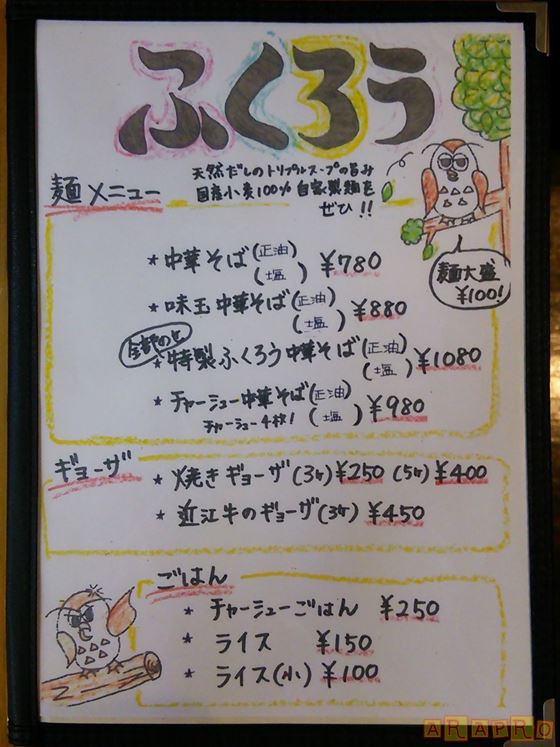 ふくろう
天然だしのトリプルスープの旨み
国産小麦100% 自家製麺を
ぜひ!!
麺メニュー
麺大盛
¥100!
* 中華そば (正油) (塩) ¥780
* 味玉中華そば (正油) (塩) ¥880
全部のせ
* 特製ふくろう中華そば (正油) (塩) ¥1080
* チャーシュー中華そば (正油) (塩) ¥980
チャーシュー4枚!
ギョーザ
* 焼きギョーザ(3ヶ) ¥250 (5ヶ) ¥400
* 近江牛のギョーザ(3ヶ) ¥450
ごはん
* チャーシューごはん ¥250
* ライス ¥150
* ライス(小) ¥100
ARAPRO